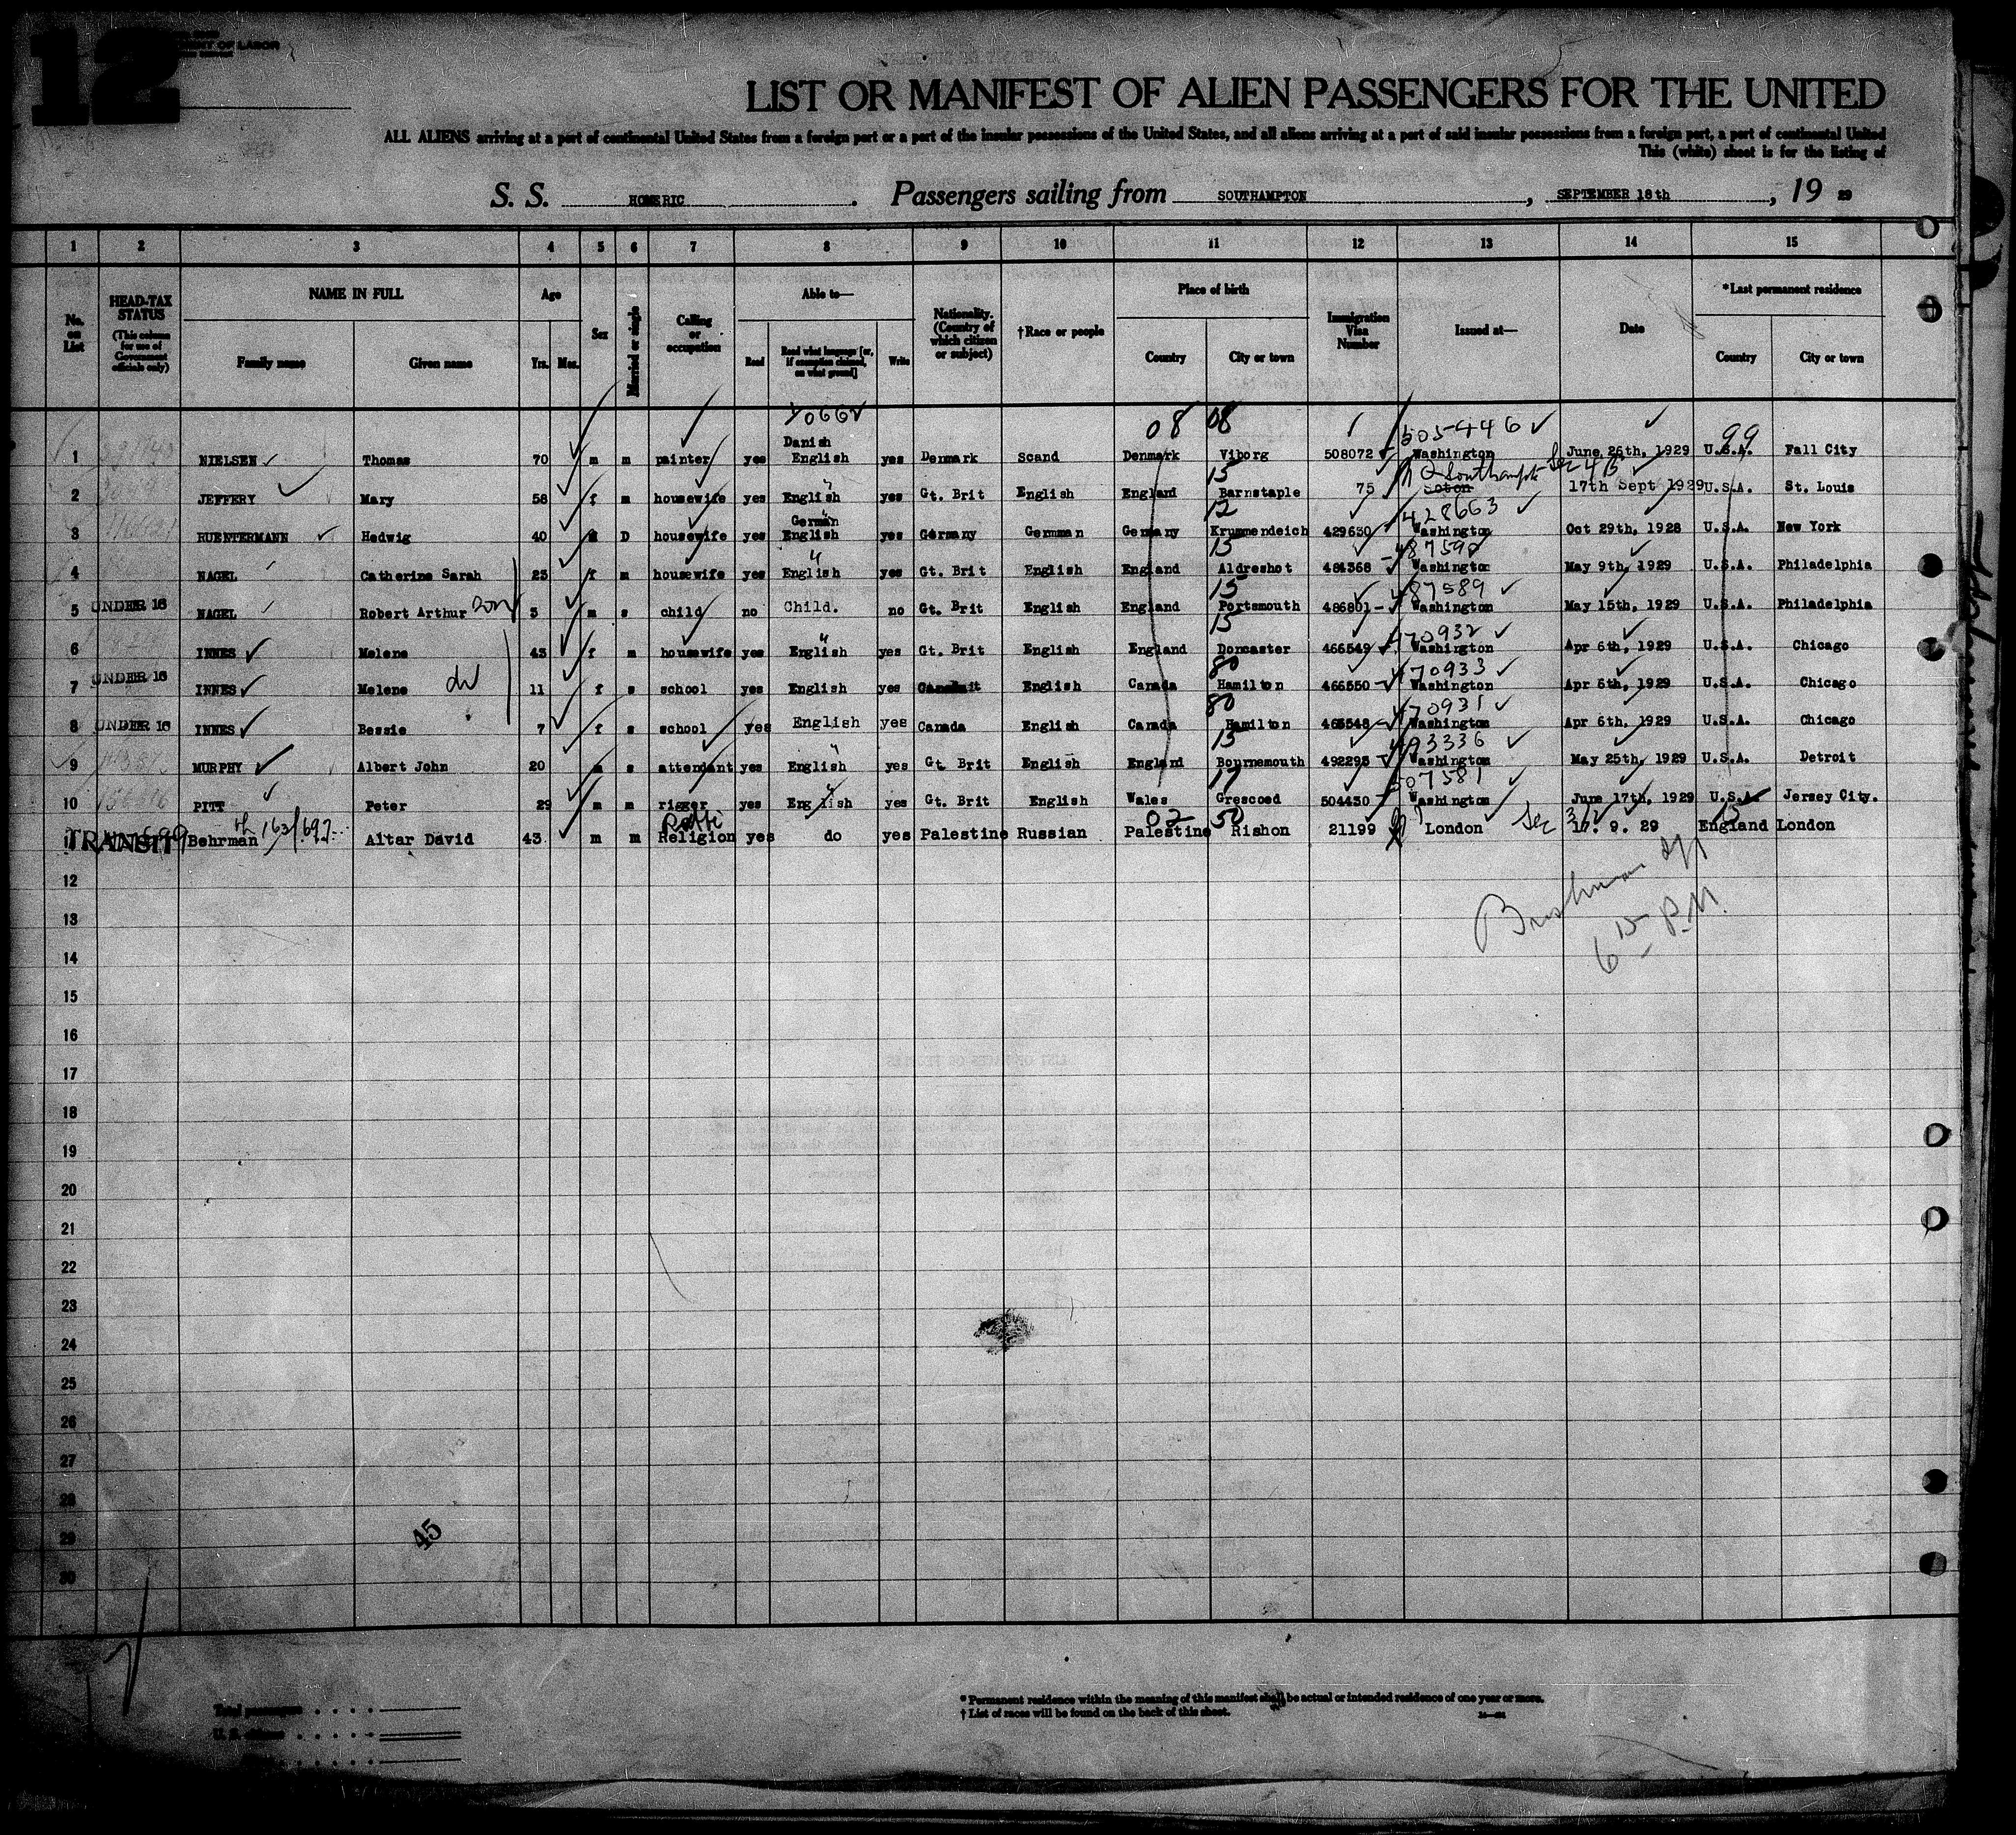 12
OF LABOR
LIST OR MANIFEST OF ALIEN PASSENGERS FOR THE UNITED
ALL ALIENS arriving at a port of continental United States from a foreign port or a port of the insular possessions of the United States, and all aliens arriving at a port of said insular possessions from a foreign port, a port of continental United
This (white) sheet is for the listing of
S. S. HOMERIC. Passengers sailing from SOUTHAMPTON, SEPTEMBER 18th, 19 29
1 2 3 4 5 6 7 8 9 10 11 12 13 14 15
No. on List
HEAD-TAX STATUS (This column for use of Government officials only)
NAME IN FULL Family name Given name
Age Yrs. Mos.
Sex
Married or single
Calling or occupation
Able to— Read Read what language [or, if exemption claimed, on what ground] Write
Nationality. (Country of which citizen or subject)
†Race or people
Place of birth Country City or town
Immigration Visa Number
Issued at—
Date
*Last permanent residence Country City or town
08 08 505446 99
1 NIELSEN Thomas 70 m m painter yes Danish English yes Denmark Scand Denmark Viborg 508072 Washington June 26th, 1929 U.S.A. Fall City
15 Southampton Sec 4B
2 JEFFERY Mary 58 f m housewife yes English yes Gt. Brit English England Barnstaple 75 Soton 17th Sept 1929 U.S.A. St. Louis
12 428663
3 RUENTERMANN Hedwig 40 D housewife yes German English yes Germany German Germany Krummendeich 429630 Washington Oct 29th, 1928 U.S.A. New York
15 487590
4 NAGEL Catherine Sarah 25 f m housewife yes English yes Gt. Brit English England Aldreshot 484368 Washington May 9th, 1929 U.S.A. Philadelphia
15 487589
5 UNDER 16 NAGEL Robert Arthur son 3 m s child no Child. no Gt. Brit English England Portsmouth 486801 Washington May 15th, 1929 U.S.A. Philadelphia
15 470932
6 INNES Melene 43 f m housewife yes English yes Gt. Brit English England Doncaster 466549 Washington Apr 6th, 1929 U.S.A. Chicago
80 470933
7 UNDER 16 INNES Melene 11 f s school yes English yes English Canada Hamilton 466550 Washington Apr 6th, 1929 U.S.A. Chicago
80 470931
8 UNDER 16 INNES Bessie 7 f s school yes English yes Canada English Canada Hamilton 466548 Washington Apr 6th, 1929 U.S.A. Chicago
15 493336
9 MURPHY Albert John 20 m s attendant yes English yes Gt. Brit English England Bournemouth 492295 Washington May 25th, 1929 U.S.A. Detroit
17 507581
10 PITT Peter 29 m m rigger yes English yes Gt. Brit English Wales Grescoed 504430 Washington June 17th, 1929 U.S.A. Jersey City.
02 50 Sec 15
11 TRANSIT Behrman Altar David 43 m m Religion yes do yes Palestine Russian Palestine Rishon 21199 London 17. 9. 29 England London
12
13
6 15 P.M.
14
15
16
17
18
19
20
21
22
23
24
25
26
27
28
29
45
30
Total passengers
U. S. citizens
* Permanent residence within the meaning of this manifest shall be actual or intended residence of one year or more.
† List of races will be found on the back of this sheet.